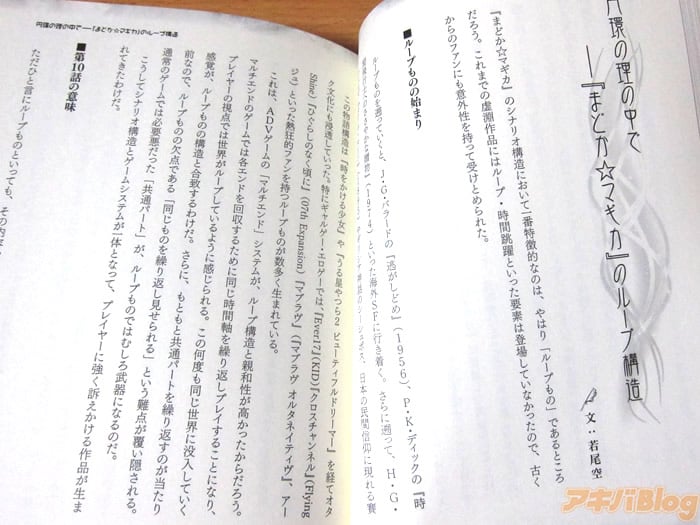 円環の理の中で
―『まどか☆マギカ』のループ構造
文：若尾空
『まどか☆マギカ』のシナリオ構造において一番特徴的なのは、やはり「ループもの」であるところ
だろう。これまでの虚淵作品にはループ・時間跳躍といった要素は登場していなかったので、古く
からのファンにも意外性を持って受けとめられた。
■ループものの始まり
ループものを遡っていくと、J・G・バラードの『逃がしどめ』（1956）、P・K・ディックの『時
（1974）といった海外SFに行き着く。さらに遡って、H・G・
日本の民間信仰に現れる賽
この物語構造は『時をかける少女』や『うる星やつら2 ビューティフルドリーマー』を経てオタ
ク文化にも浸透していった。特にギャルゲー・エロゲーでは、『Ever17』（KID）『クロスチャンネル』（Flying
Shine）『ひぐらしのなく頃に』（07th Expansion）『マブラヴ』（『マブラヴ オルタネイティヴ』、アー
ジュ）といった熱狂的ファンを持つループものが数多く生まれている。
これは、ADVゲームの「マルチエンド」システムが、ループ構造と親和性が高かったからだろう。
マルチエンドのゲームでは各エンドを回収するために同じ時間軸を繰り返しプレイすることになり、
プレイヤーの視点では世界がループしているように感じられる。この何度も同じ世界に没入していく
感覚が、ループものの構造と合致するわけだ。さらに、もともと共通パートを繰り返すのが当たり
前なので、ループものの欠点である「同じものを繰り返し見せられる」という難点が覆い隠される。
通常のゲームでは必要悪だった「共通パート」が、ループものではむしろ武器になるのだ。
こうしてシナリオ構造とゲームシステムが一体となって、プレイヤーに強く訴えかける作品が生ま
れてきたわけだ。
■第10話の意味
ただひと言にループものといっても、その内容
円環の理の中で―『まどか☆マギカ』のループ構造
アキバBlog